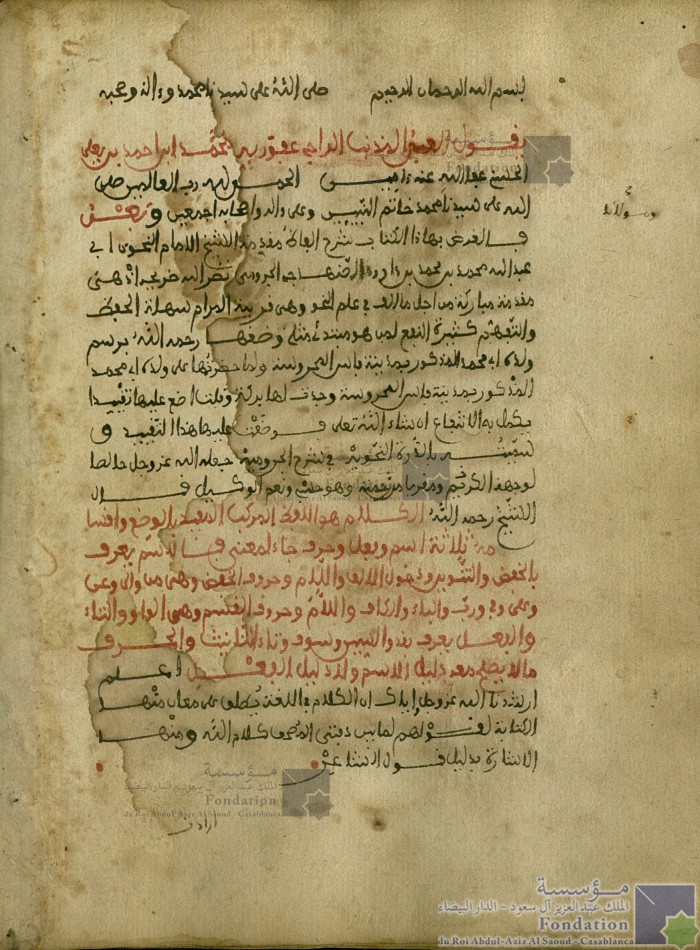 بسم الله الرحمان الرحيم صلى الله على سيدنا محمد وءاله وصحبه
يقول العبد المذنب الراجي عفو ربه محمد ابن احمد بن يعلى
الحسني عفا الله عنه ءامين الحمد لله رب العالمين صلى
الله على سيدنا محمد خاتم النبيين وعلى ءاله واصحابه اجمعين وبعد
ومولانا
فالغرض بهاذا الكتاب شرح الفاظ مقدمة الشيخ الامام النحوي ابي
عبد الله محمد بن محمد بن داوود الصنهاجي الجرومي نضر الله ضريحه اذ هي
مقدمة مباركة من اجل ما الف في علم النحو وهي قريبة المرام سهلة الحفظ
والتفهم كثيرة النفع لمن هو مبتدئ مثلي وضعها رحمه الله برسم
ولده ابي محمد المذكور بمدينة فاس المحروسة ولما حضرتها على ولده ابي محمد
المذكور بمدينة فاس المحروسة وجدت لها بركة وقلت اضع عليها تقييدا
يكمل به الانتفاع ان شاء الله تعلى فوضعت عليها هذا التقييد و
سميته بالدرة النحوية في شرح الجرومية جعله الله عز وجل خالصا
لوجهه الكريم ومقربا من رحمته وهو حسبي ونعم الوكيل قال
الشيخ رحمه الله الكلام هو اللفظ المركب المفيد بالوضع واقسا
مه ثلاثة اسم وفعل وحرف جاء لمعنى فالاسم يعرف
بالخفض والتنوين ودخول الالف واللام وحروف الخفض وهي من والى وعن
وعلى وفي ورب والباء والكاف واللام وحروف القسم وهي الواو والباء والتاء
والفعل يعرف بقد والسين وسوف وتاء التانيث والحرف
ما لا يصلح معه دليل الاسم ولا دليل الفعل اعلم
ارشدنا الله عز وجل واياك ان الكلام في اللغة يطلق على معان منها
الكتابة لقولهم لما بين دفتي المصحف كلام الله ومنها
الاشارة بدليل قول الشاعر
ارادت
مؤسسة
الملك عبد العزيز آل سعود - الدار البيضاء
Fondation
du Roi Abdul-Aziz Al Saoud - Casablanca